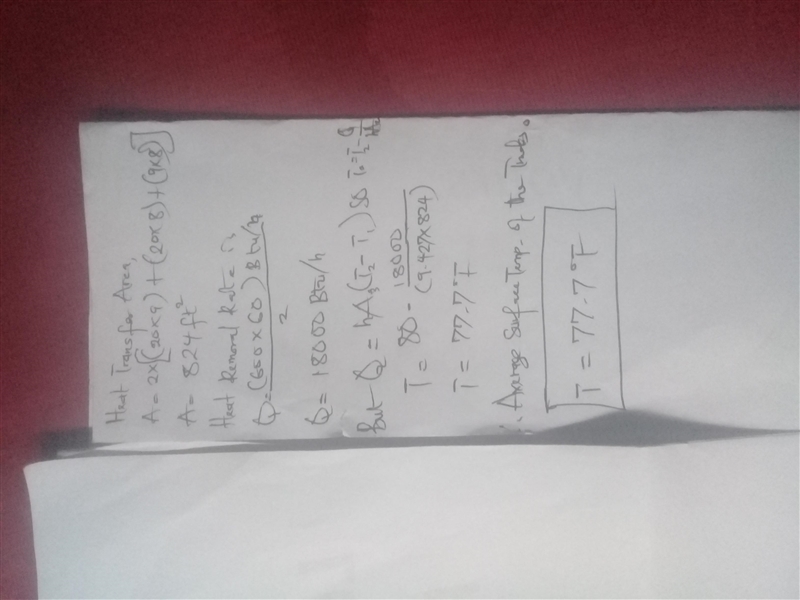 Heat Transfer Area,
A = 2x[(20x9) + (20x8) + (9x8)]
A = 824 ft²
Heat Removal Rate is
Q = (600 x 60) Btu/h
2
Q = 18000 Btu/h
But Q = hAs(T2 - T1) SO
T = 80 - 18000
(9.427 x 824)
T = 77.7°F
∴ Average Surface Temp. of the Trucks.
T = 77.7°F